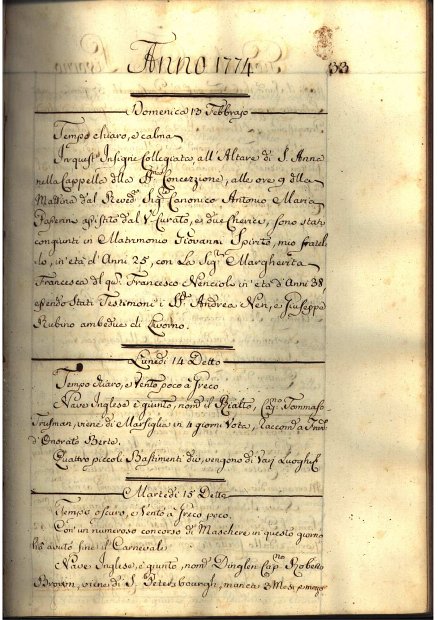 Anno 1774
33
Domenica 13 Febbrajo
Tempo chiaro, e calma
In quest' Insigne Collegiata, all' Altare di S. Anna
nella Cappella della Concezzione, alle ore 9 della
Mattina dal Revd. Sigr. Canonico Antonio Maria
assistito dal Vo. Curato, e due Cherici, sono stati
congiunti in Matrimonio Giovanni Spirito, mio fratel
lo, in età d'Anni 25, con La Sigra. Margherita
Francesca del qm. Francesco Nenciolo in età d'Anni 38,
essendo Stati Testimoni i SS. Andrea Neri, e Giuseppe
Rubino ambedue di Livorno.
Lunedi 14 Detto
Tempo chiaro, e Vento poco a Greco
Nave Inglese è giunto, nom. il Rialto, Capn. Tommaso
Trusman, viene di Marsiglia in 4 giorni Vota, Raccomda. a
d'Onorato Berte.
Quattro piccoli Bastimenti vengono di Varj Luoghi
Martedi 15 Detto
Tempo oscuro, e Vento a Greco poco.
Con un numeroso concorso di Maschere in questo giorno
hà avuto fine il Carnevale
Nave Inglese, è giunto, nom. Dinglen Capno. Roberto
Brown, viene di S. Petersbourgh, manca 3 Mesi e mezzo